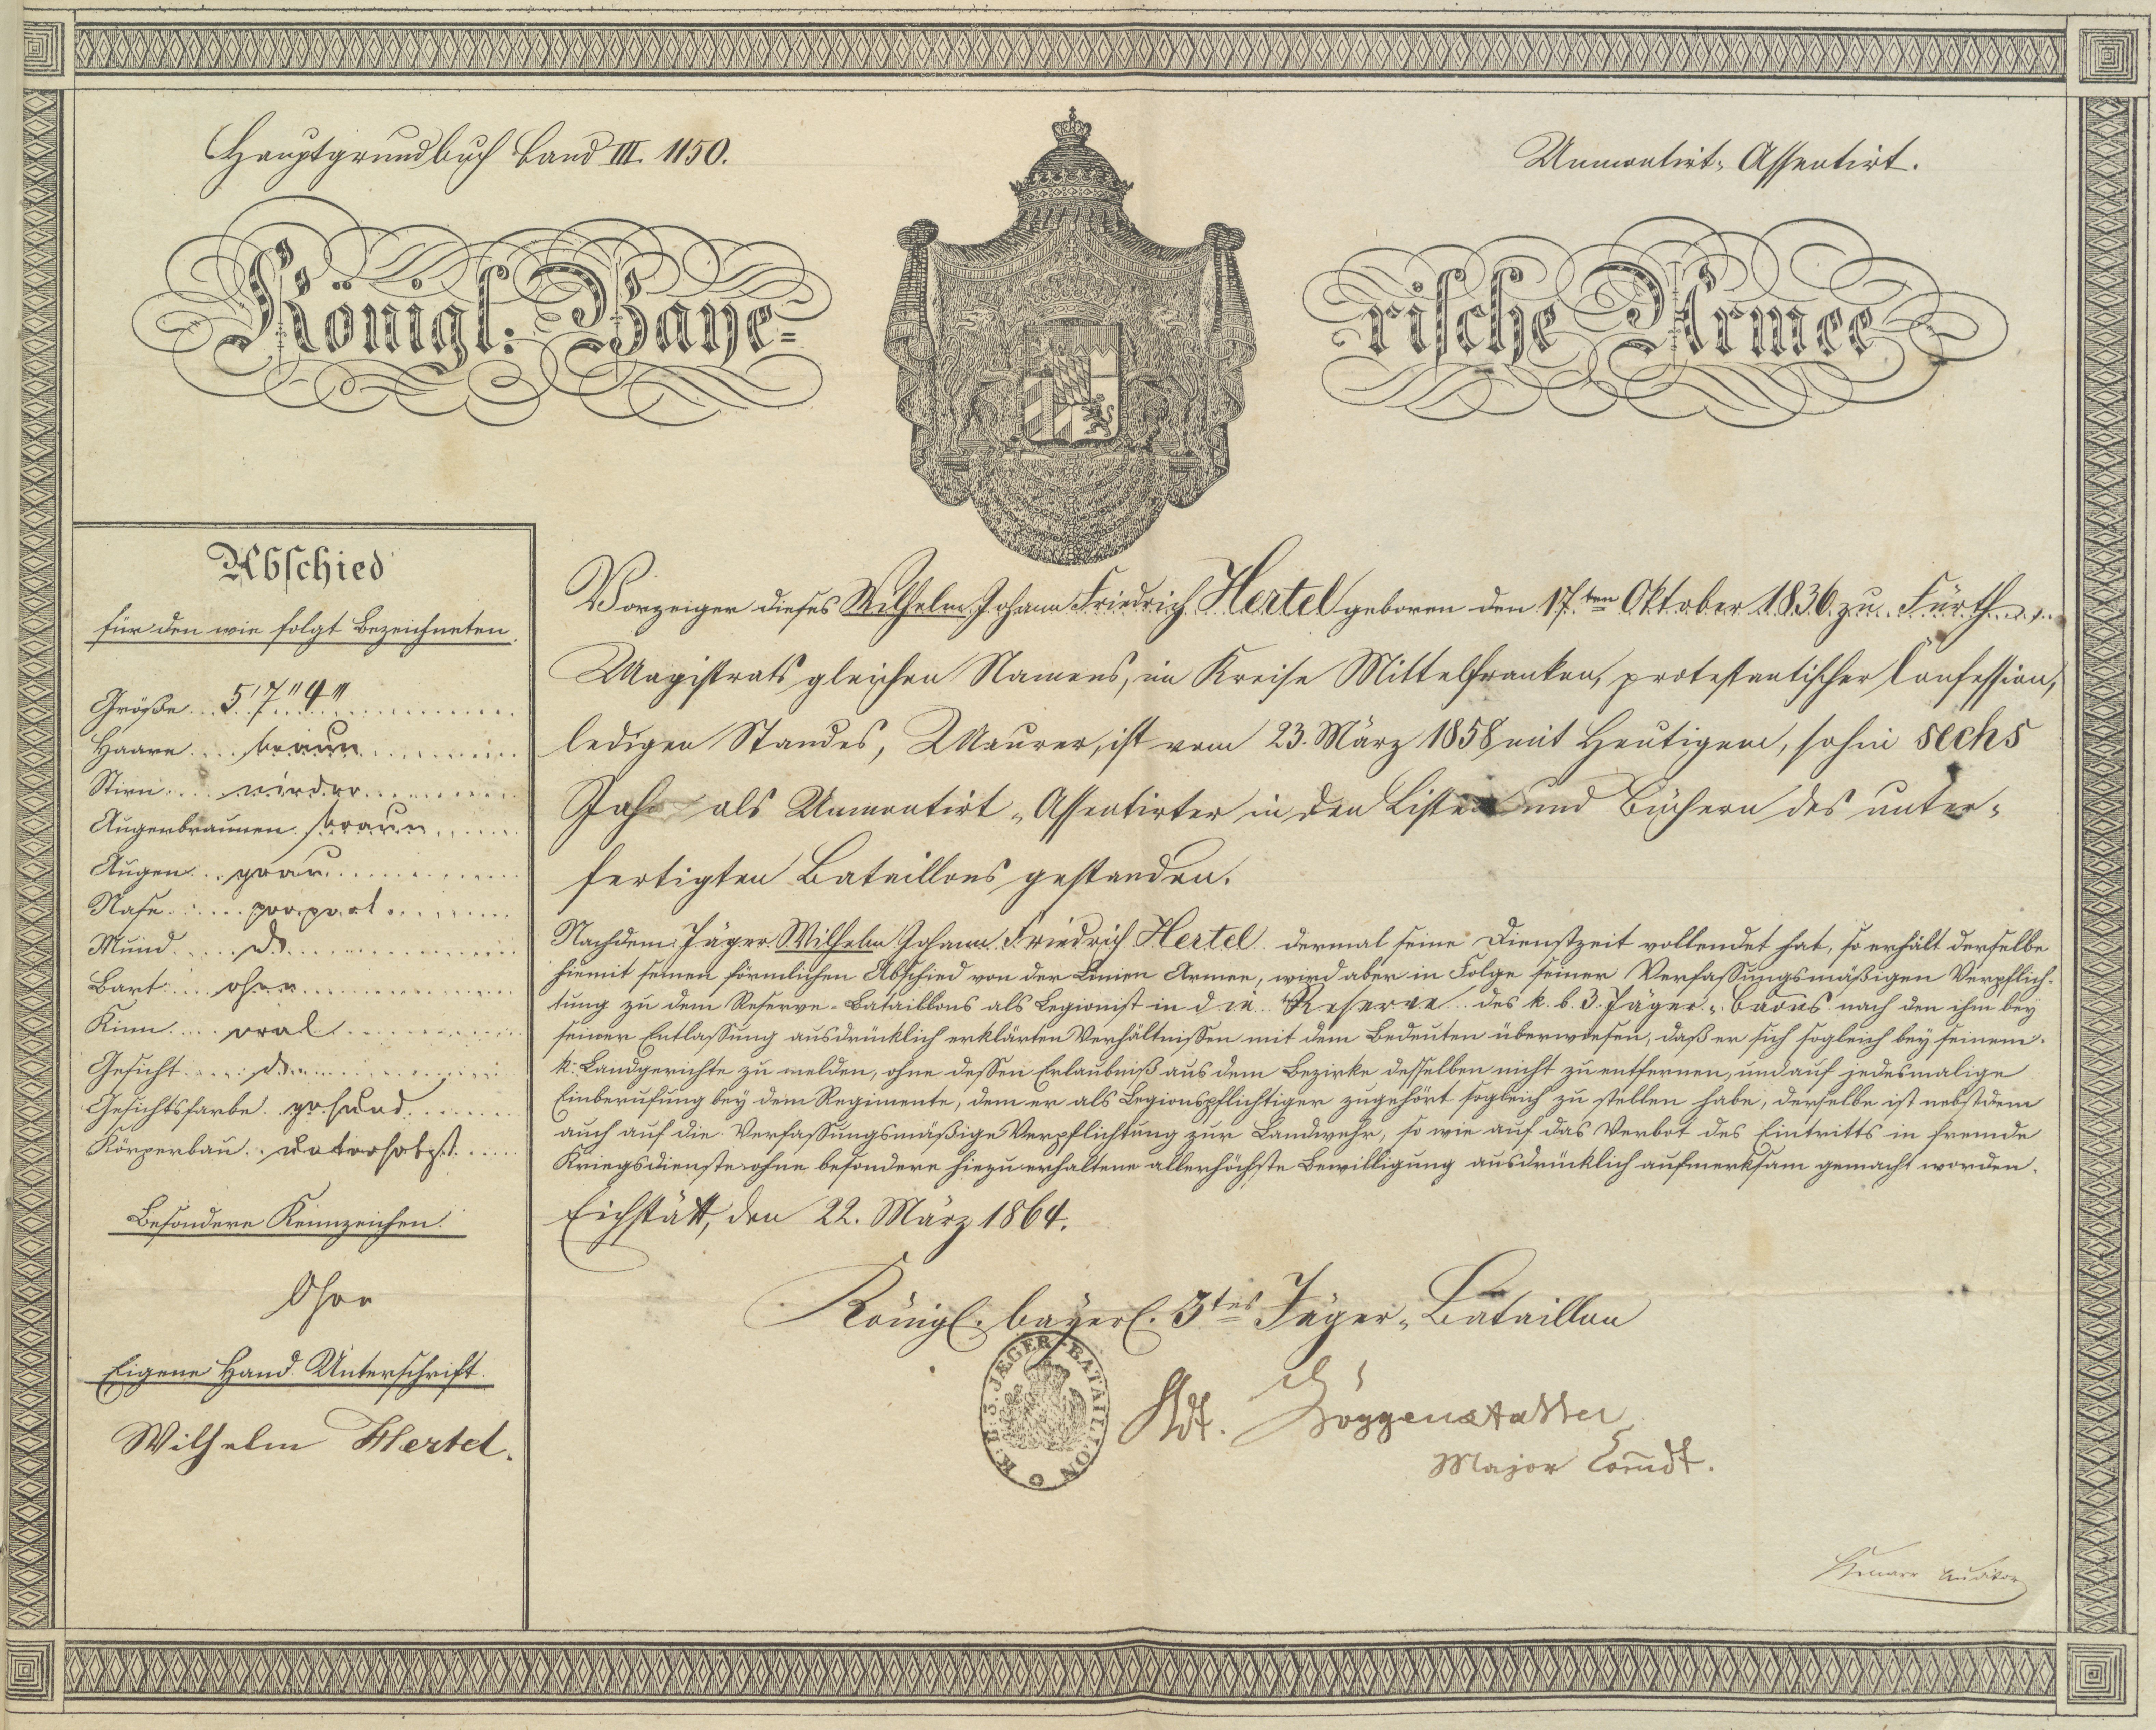 Hauptgrundbuch Band III. 1150.
Unmontirt-Assentirt.
Königl: Baye=
rische Armee
Abschied
für den wie folgt Bezeichneten.
Größe 5' 7" 4'''
Haare braun
Stirn nieder
Augenbraunen braun
Augen grau
Nase proport
Mund do
Bart ohne
Kinn oval
Gesicht do
Gesichtsfarbe gesund
Körperbau untersetzt
Besondere Kennzeichen.
Ohne
Eigene Hand Unterschrift.
Wilhelm Hertel.
Vorzeiger dieses Wilhelm Johann Friedrich Hertel geboren den 17.ten Oktober 1836 zu Fürth
Magistrats gleichen Namens, im Kreise Mittelfranken, protestantischer Confession,
ledigen Standes, Maurer, ist vom 23. März 1858 mit Heutigem, sohin sechs
Jahr als Unmontirt-Assentirter in den Listen und Büchern des unter-
fertigten Bataillons gestanden.
Nachdem Jäger Wilhelm Johann Friedrich Hertel dermal seine Dienstzeit vollendet hat, so erhält derselbe
hiemit seinen förmlichen Abschied von der Linien Armee, wird aber in Folge seiner Verfassungsmäßigen Verpflich-
tung zu dem Reserve-Bataillons als Legionist in die Reserve des k. b. 3. Jäger-Baons nach den ihm bey
seiner Entlassung ausdrücklich erklärten Verhältnissen mit dem Bedeuten überwiesen, daß er sich sogleich bey seinem
k. Landgerichte zu melden, ohne dessen Erlaubniß aus dem Bezirke desselben nicht zu entfernen, und auf jedesmalige
Einberufung bey dem Regimente, dem er als Legionspflichtiger zugehört sogleich zu stellen habe, derselbe ist nebstdem
auch auf die Verfassungsmäßige Verpflichtung zur Landwehr, so wie auf das Verbot des Eintritts in fremde
Kriegsdienste ohne besondere hiezu erhaltene allerhöchste Bewilligung ausdrücklich aufmerksam gemacht worden.
Eichstätt, den 22. März 1864.
Königl. bayerl. 3tes Jäger-Bataillon
K. B. 3. JAEGER-BATAILLON
Major Comdt.
Auditor